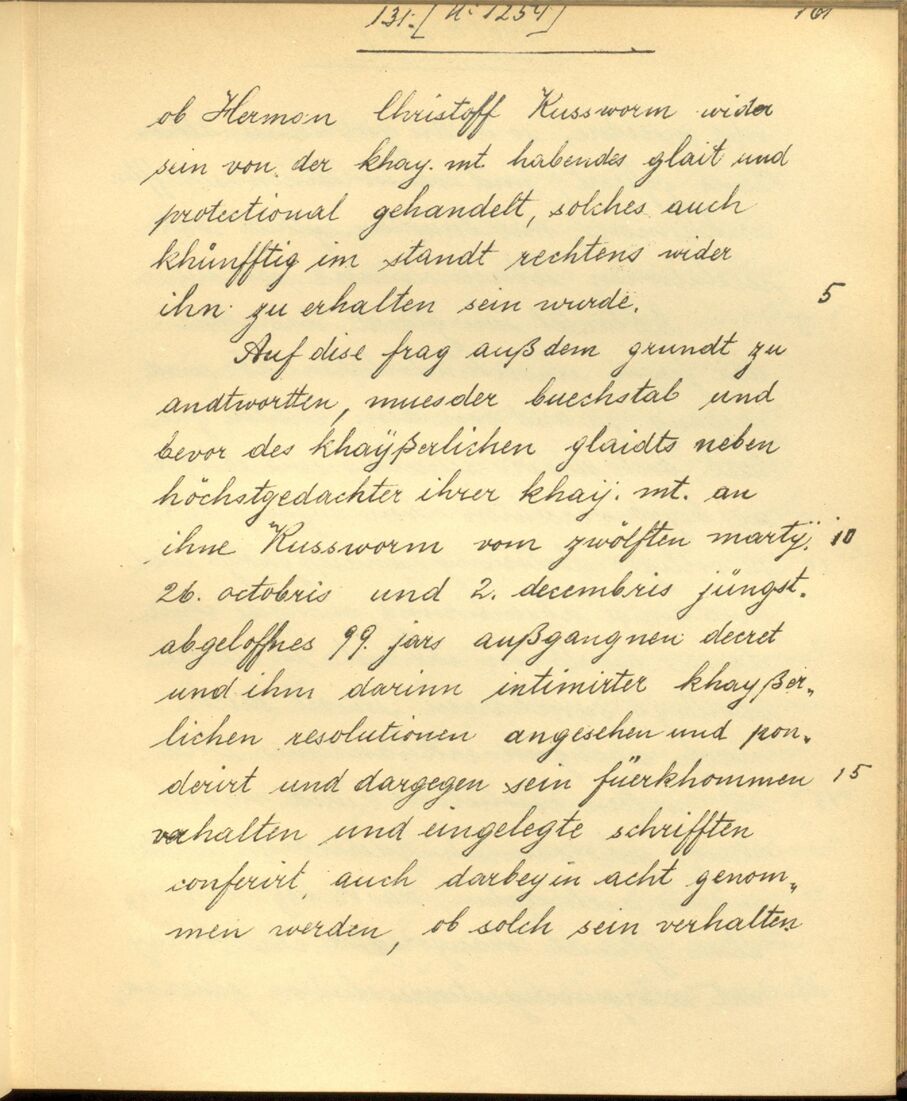 131. [Nº 1254] 161
ob Herman Christoff Kussworm wider
sein von der khay. mt. habendes glait und
protectional gehandelt, solches auch
khůnfftig im standt rechtens wider
ihn zu erhalten sein wurde. 5
Auf dise frag auß dem grundt zu
andtwortten, mues der buechstab und
bevor des khaÿßerlichen glaidts neben
höchstgedachter ihrer khaij. mt. an
ihne Kussworm vom zwölften martÿ, 10
26. octobris und 2. decembris jüngst.
abgeloffnes 99. jars außgangnen decret
und ihm darinn intimirter khayßer„
lichen resolutionen angesehen und pon„
derirt und dargegen sein füerkhommen 15
verhalten und eingelegte schrifften
conferirt auch darbey in acht genom„
men werden, ob solch sein verhalten